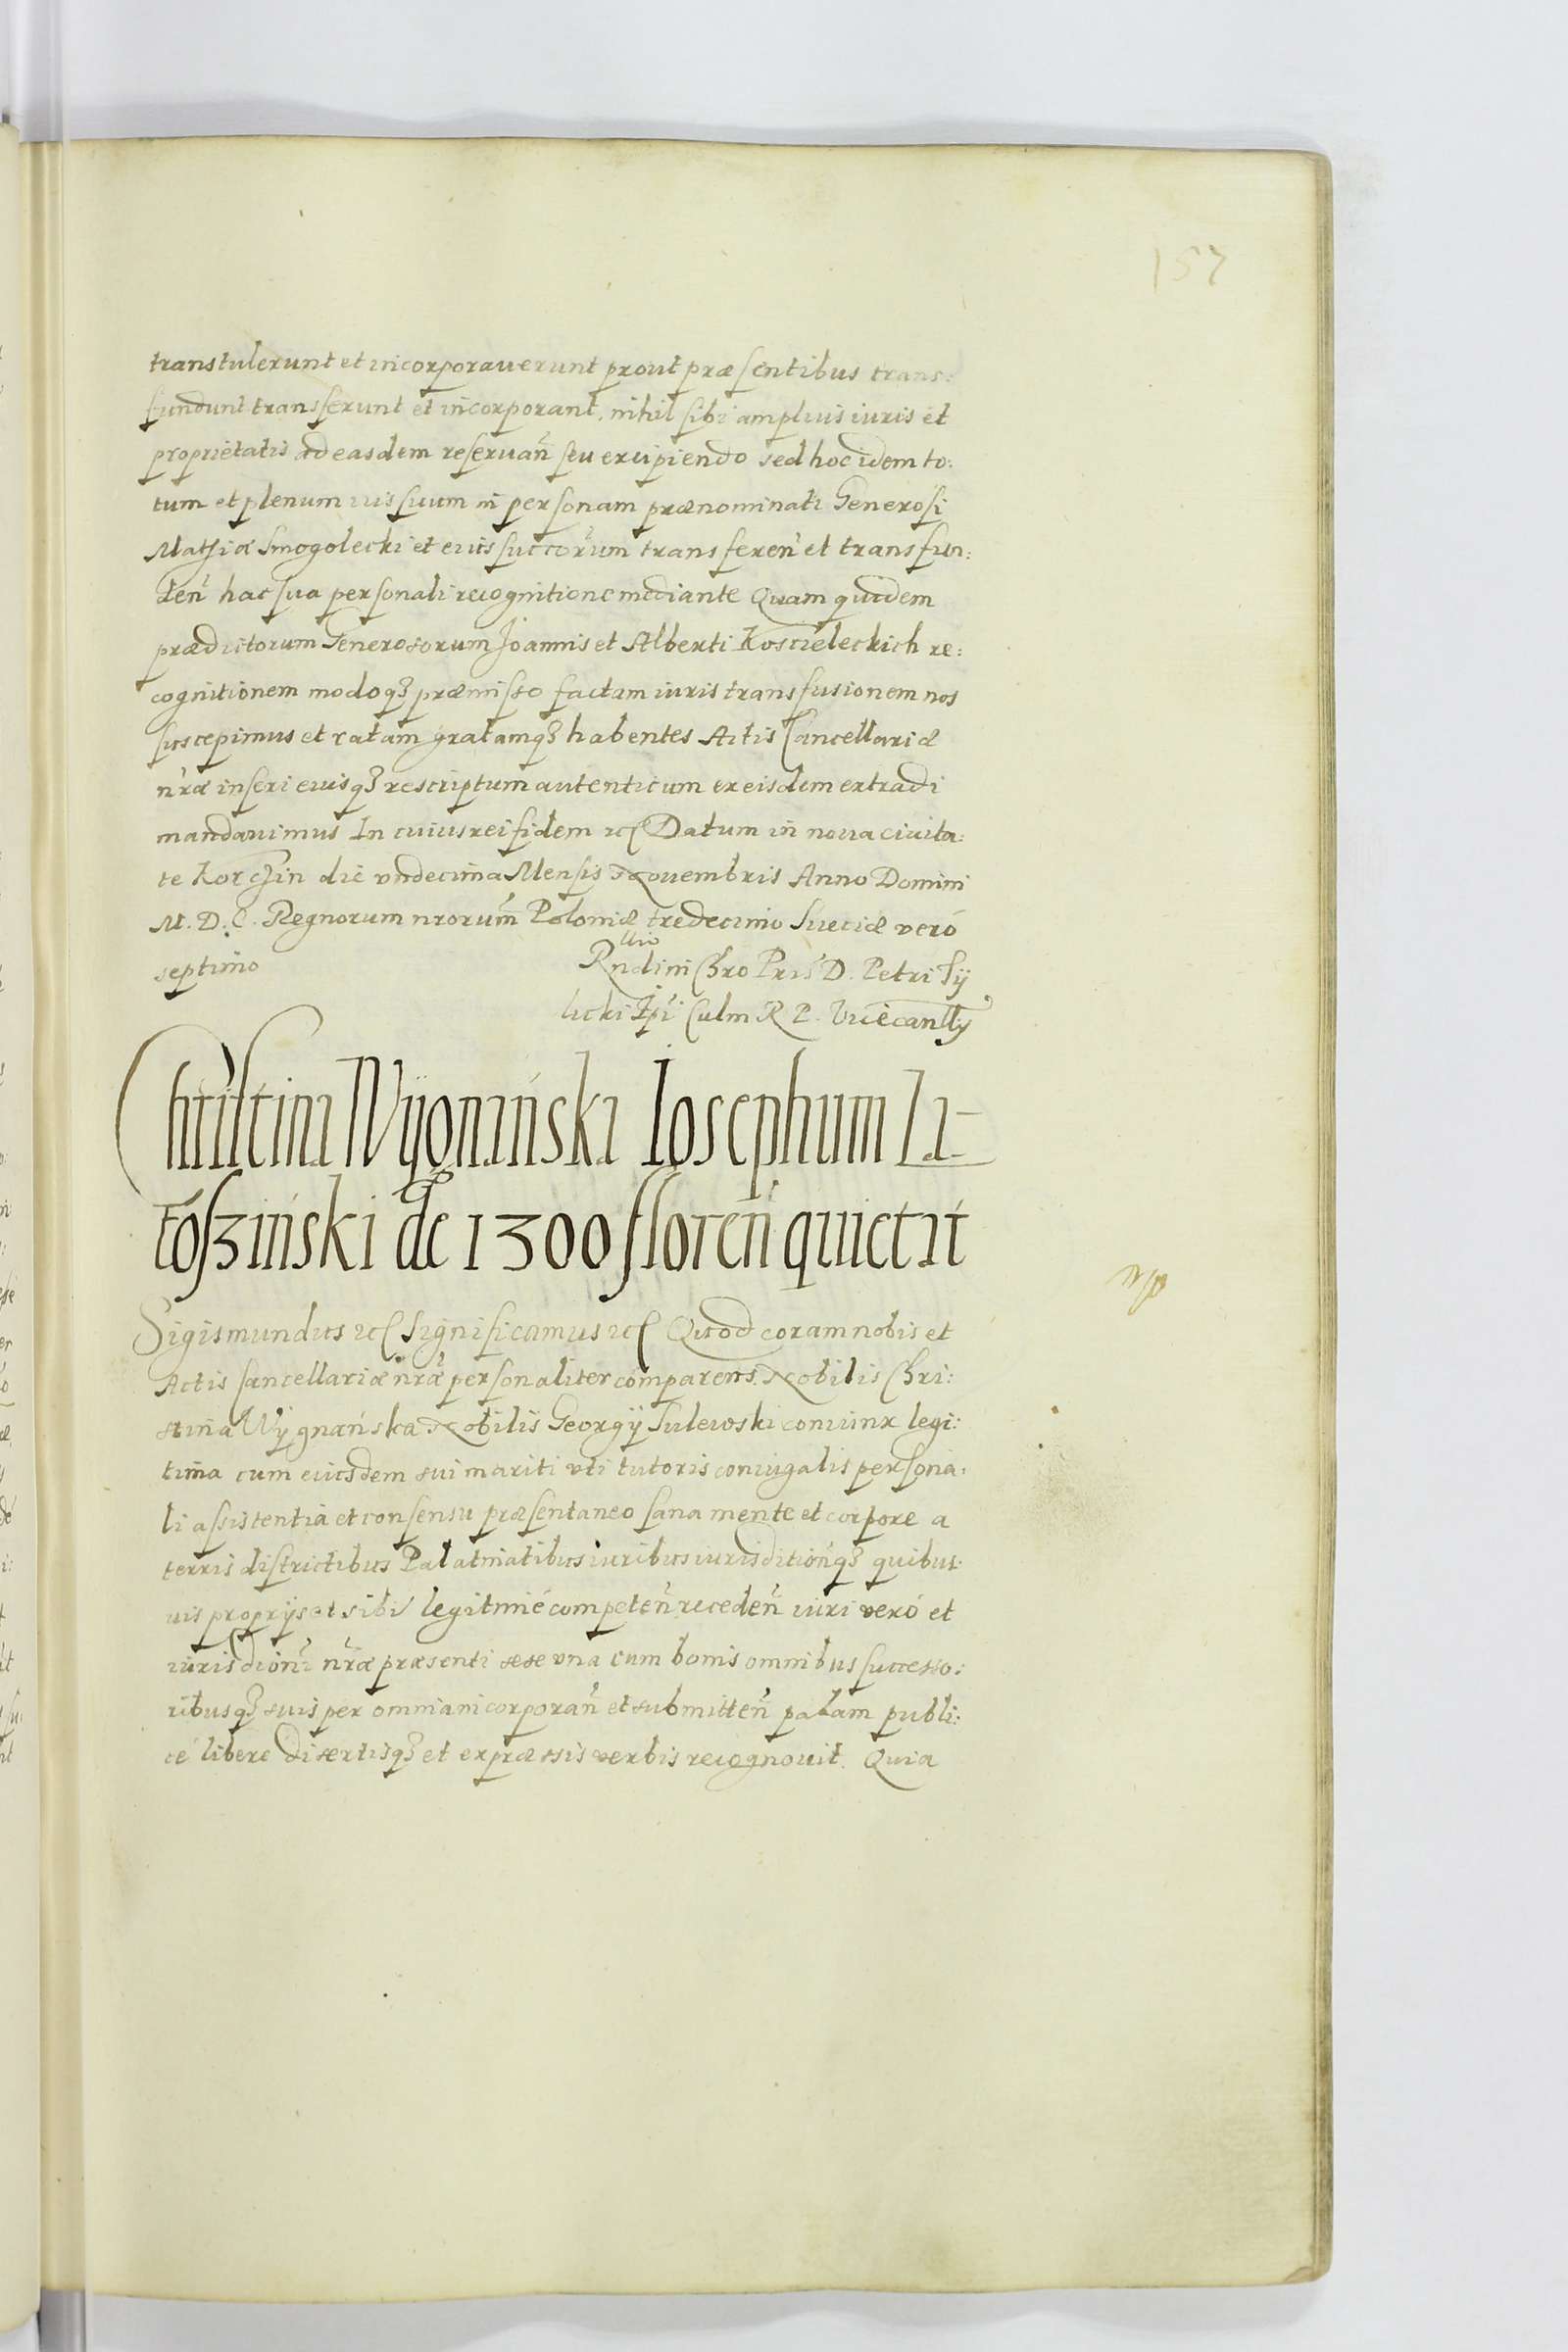 157
transtulerunt et incorporauerunt prout præsentibus trans:
fundunt transferunt et incorporant, nihil sibi amplius iuris et
proprietatis ad easdem reseruan̄ seu excipiendo sed hoc idem to:
tum et plenum ius suum in personam prænominati Generosi
Mathiæ Smogolecki et eius succorum transferen̄ et transfun:
den̄ hac sua personali recognitione mediante Quam quidem
prædictorum Generosorum Joannis et Alberti Koscieleckich re:
cognitionem modoqꝫ præmisso factam iuris transfusionem nos
suscepimus et ratam gratamqꝫ habentes Actis Cancellariæ
n̄ræ inseri eiusqꝫ rescriptum autenticum ex eisdem extradi
mandauimus In cuius rei fidem ꝛc̃ Datum in noua ciuita:
te Korczin die vndecima Mensis Nouembris Anno Domini
M. D. C. Regnorum nrorum̄ Poloniæ tredecimo Sueciæ veró
septimo
Rndini Chro Pris D. Petri Tÿ
licki Epi Culm R P. Vicecanllÿ
Christini Wÿgniński Iosephum Li-
toſziński de 1300 floren̄ quietit
Sigismundus ꝛc̃ Significamus ꝛc̃ Quod coram nobis et
Actis Cancellariæ n̄ræ personaliter comparens Nobilis Chri:
stina Wÿgnańska Nobilis Georgÿ Sulewski coniunx legi:
tima cum eiusdem sui mariti vti tutoris coniugalis persona:
li assistentia et consensu præsentaneo sana mente et corpore a
terris districtibus Palatinatibus iuribus iurisditionqꝫ quibus:
uis proprÿs et sibi legitimé competen̄ receden̄ iuri veró et
iurisdioni n̄ræ præsenti sese vna cum bonis omnibus successo:
ribusqꝫ suis per omnia incorporan̄ et submitten̄ palam publi:
cé libere disertisqꝫ et expræssis verbis recognouit. Quia